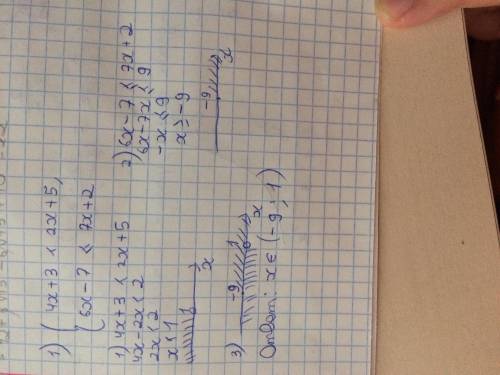 1) { 4x+3 < 2x+5,
{ 6x-7 ⩽ 7x+2
1) 4x+3 < 2x+5
4x-2x < 2
2x < 2
x < 1
1 x
2) 6x-7 ⩽ 7x+2
6x-7x ⩽ 9
-x ⩽ 9
x ⩾ -9
-9 x
3) -9 1 x
Ответ: x ∈ (-9; 1)